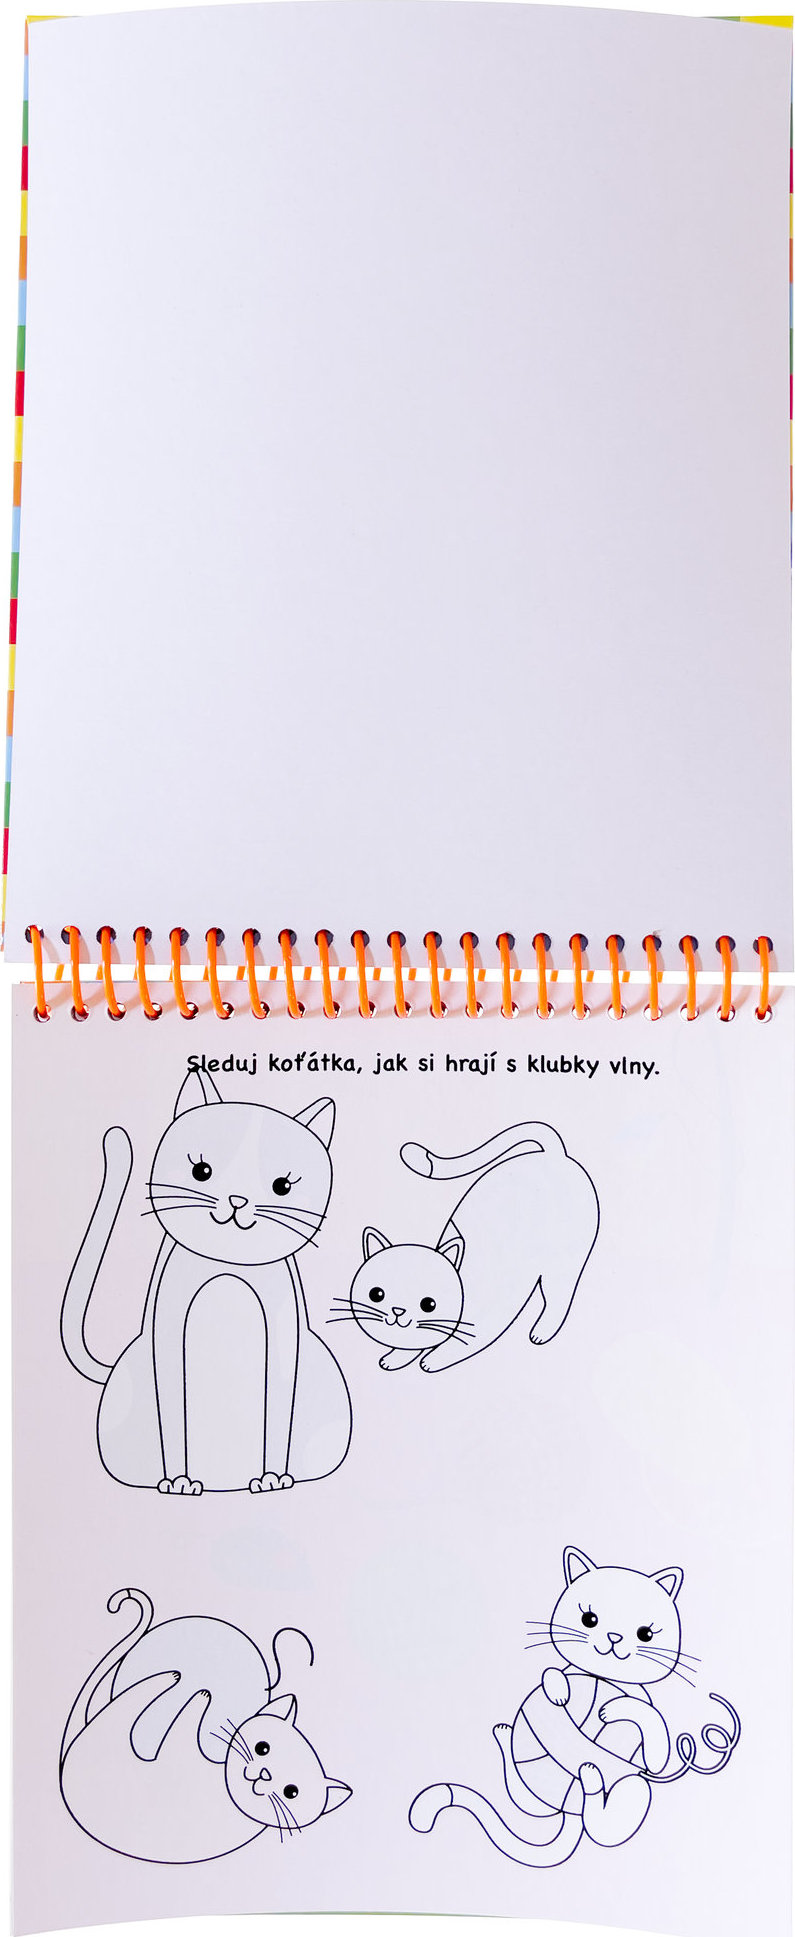 Sleduj koťátka, jak si hrají s klubky vlny.